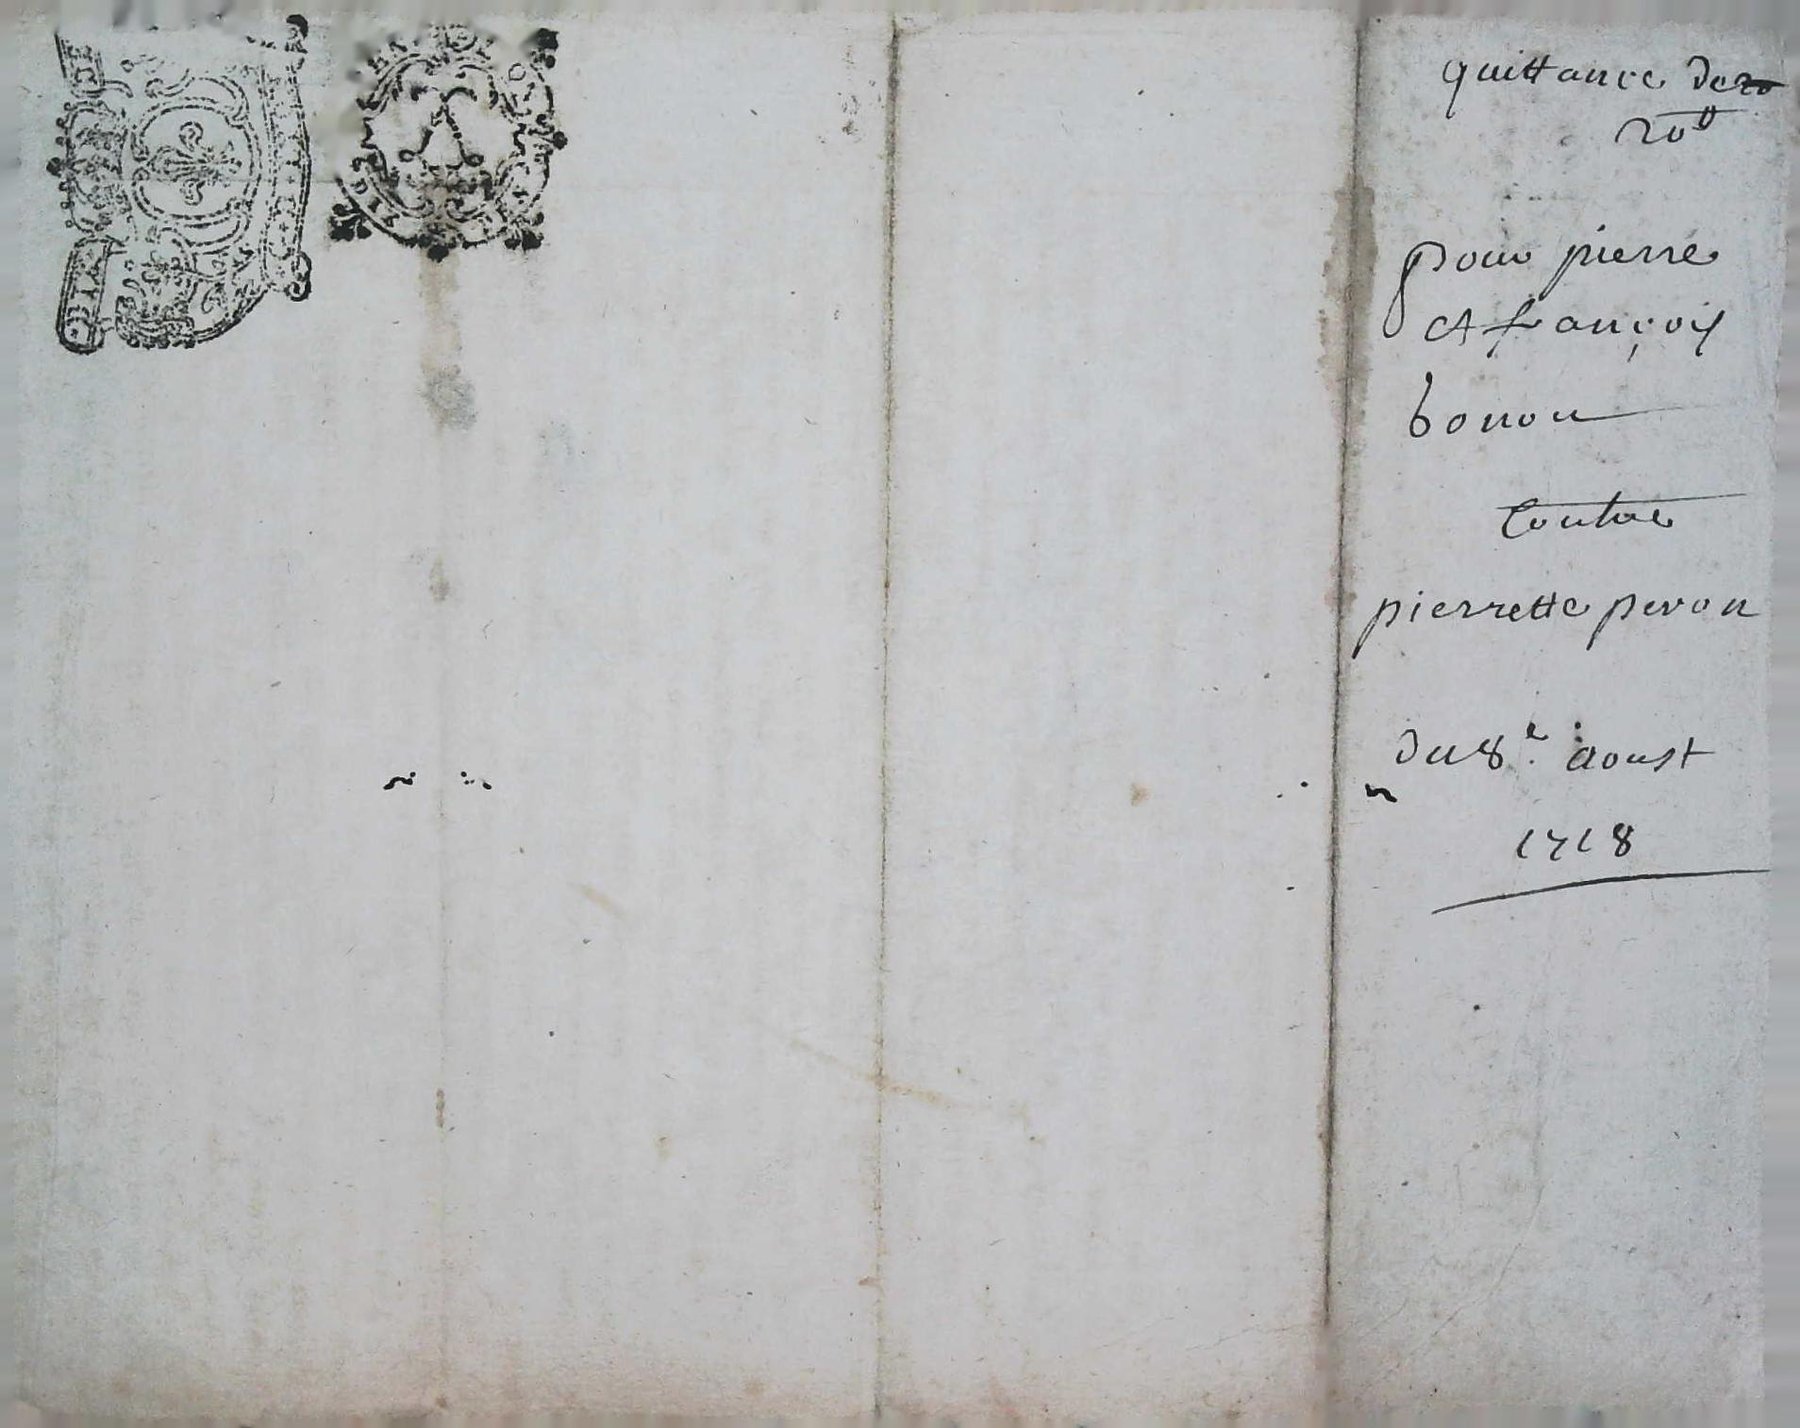 quittance de
20ᵗᵗ
pour pierre
et françois
bonon
Contre
pierrette peron
du 8e. aoust
1718